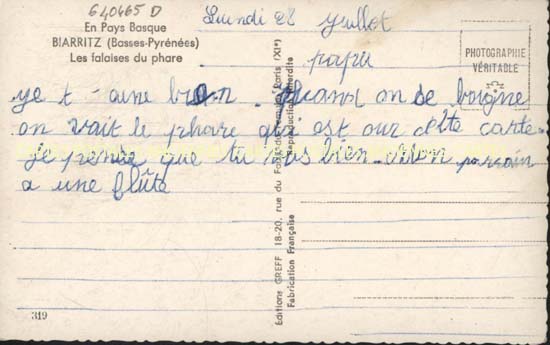 640465 D
En Pays Basque
BIARRITZ (Basses-Pyrénées)
Les falaises du phare
Luindi 28 Juillet
PHOTOGRAPHIE
VÉRITABLE
papu
ye t-aime bien. Quand on se baigne
on vait le phare qui est sur cette carte.
je pense que tu vas bien. Mon parrain
a une flûte
Editions GREFF 18-20, rue du Faub.-du-Temple, Paris (XIe)
Fabrication Française Reproduction interdite
319